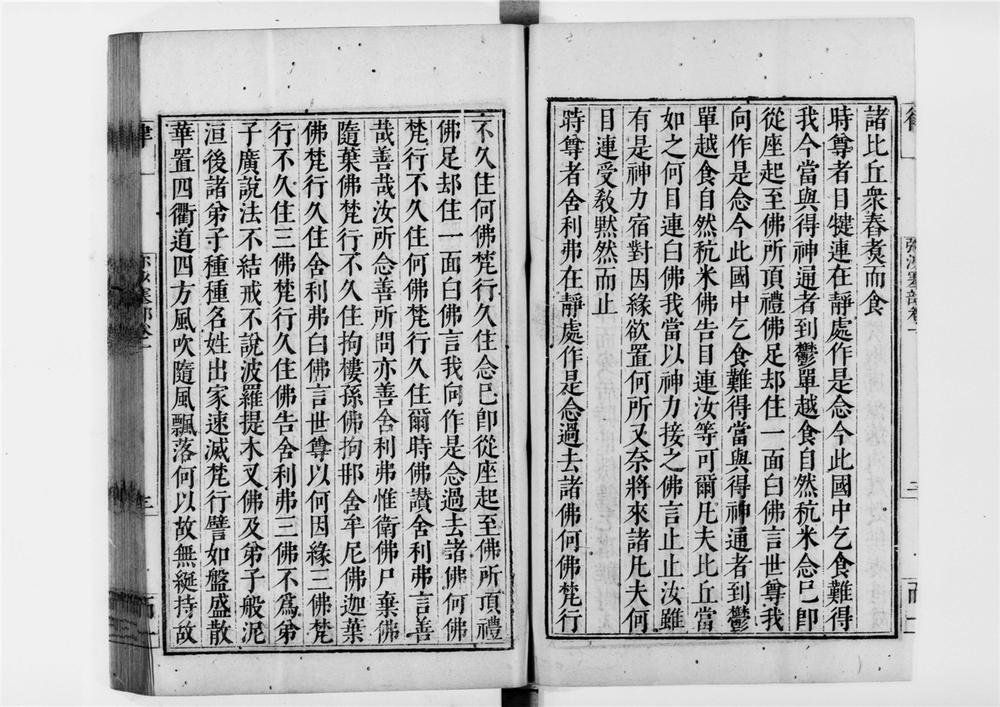 諸比丘衆舂煑而食
時尊者目犍連在靜處作是念今此國中乞食難得
我今當與得神通者到鬱單越食自然秔米念已即
從座起至佛所頂禮佛足却住一面白佛言世尊我
向作是念今此國中乞食難得當與得神通者到鬱
單越食自然秔米佛告目連汝等可爾凡夫比丘當
如之何目連白佛我當以神力接之佛言止止汝雖
有是神力宿對因緣欲置何所又奈將來諸凡夫何
目連受敎黙然而止
時尊者舍利弗在靜處作是念過去諸佛何佛梵行
不久住何佛梵行久住念已即從座起至佛所頂禮
佛足却住一面白佛言我向作是念過去諸佛何佛
梵行不久住何佛梵行久住爾時佛讃舍利弗言善
哉善哉汝所念善所問亦善舍利弗惟衛佛尸棄佛
隨葉佛梵行不久住拘樓孫佛拘那舍牟尼佛迦葉
佛梵行久住舍利弗白佛言世尊以何因緣三佛梵
行不久住三佛梵行久住佛告舍利弗三佛不爲弟
子廣說法不結戒不說波羅提木叉佛及弟子般泥
洹後諸弟子種種名姓出家速滅梵行譬如盤盛散
華置四衢道四方風吹隨風飄落何以故無綖持故